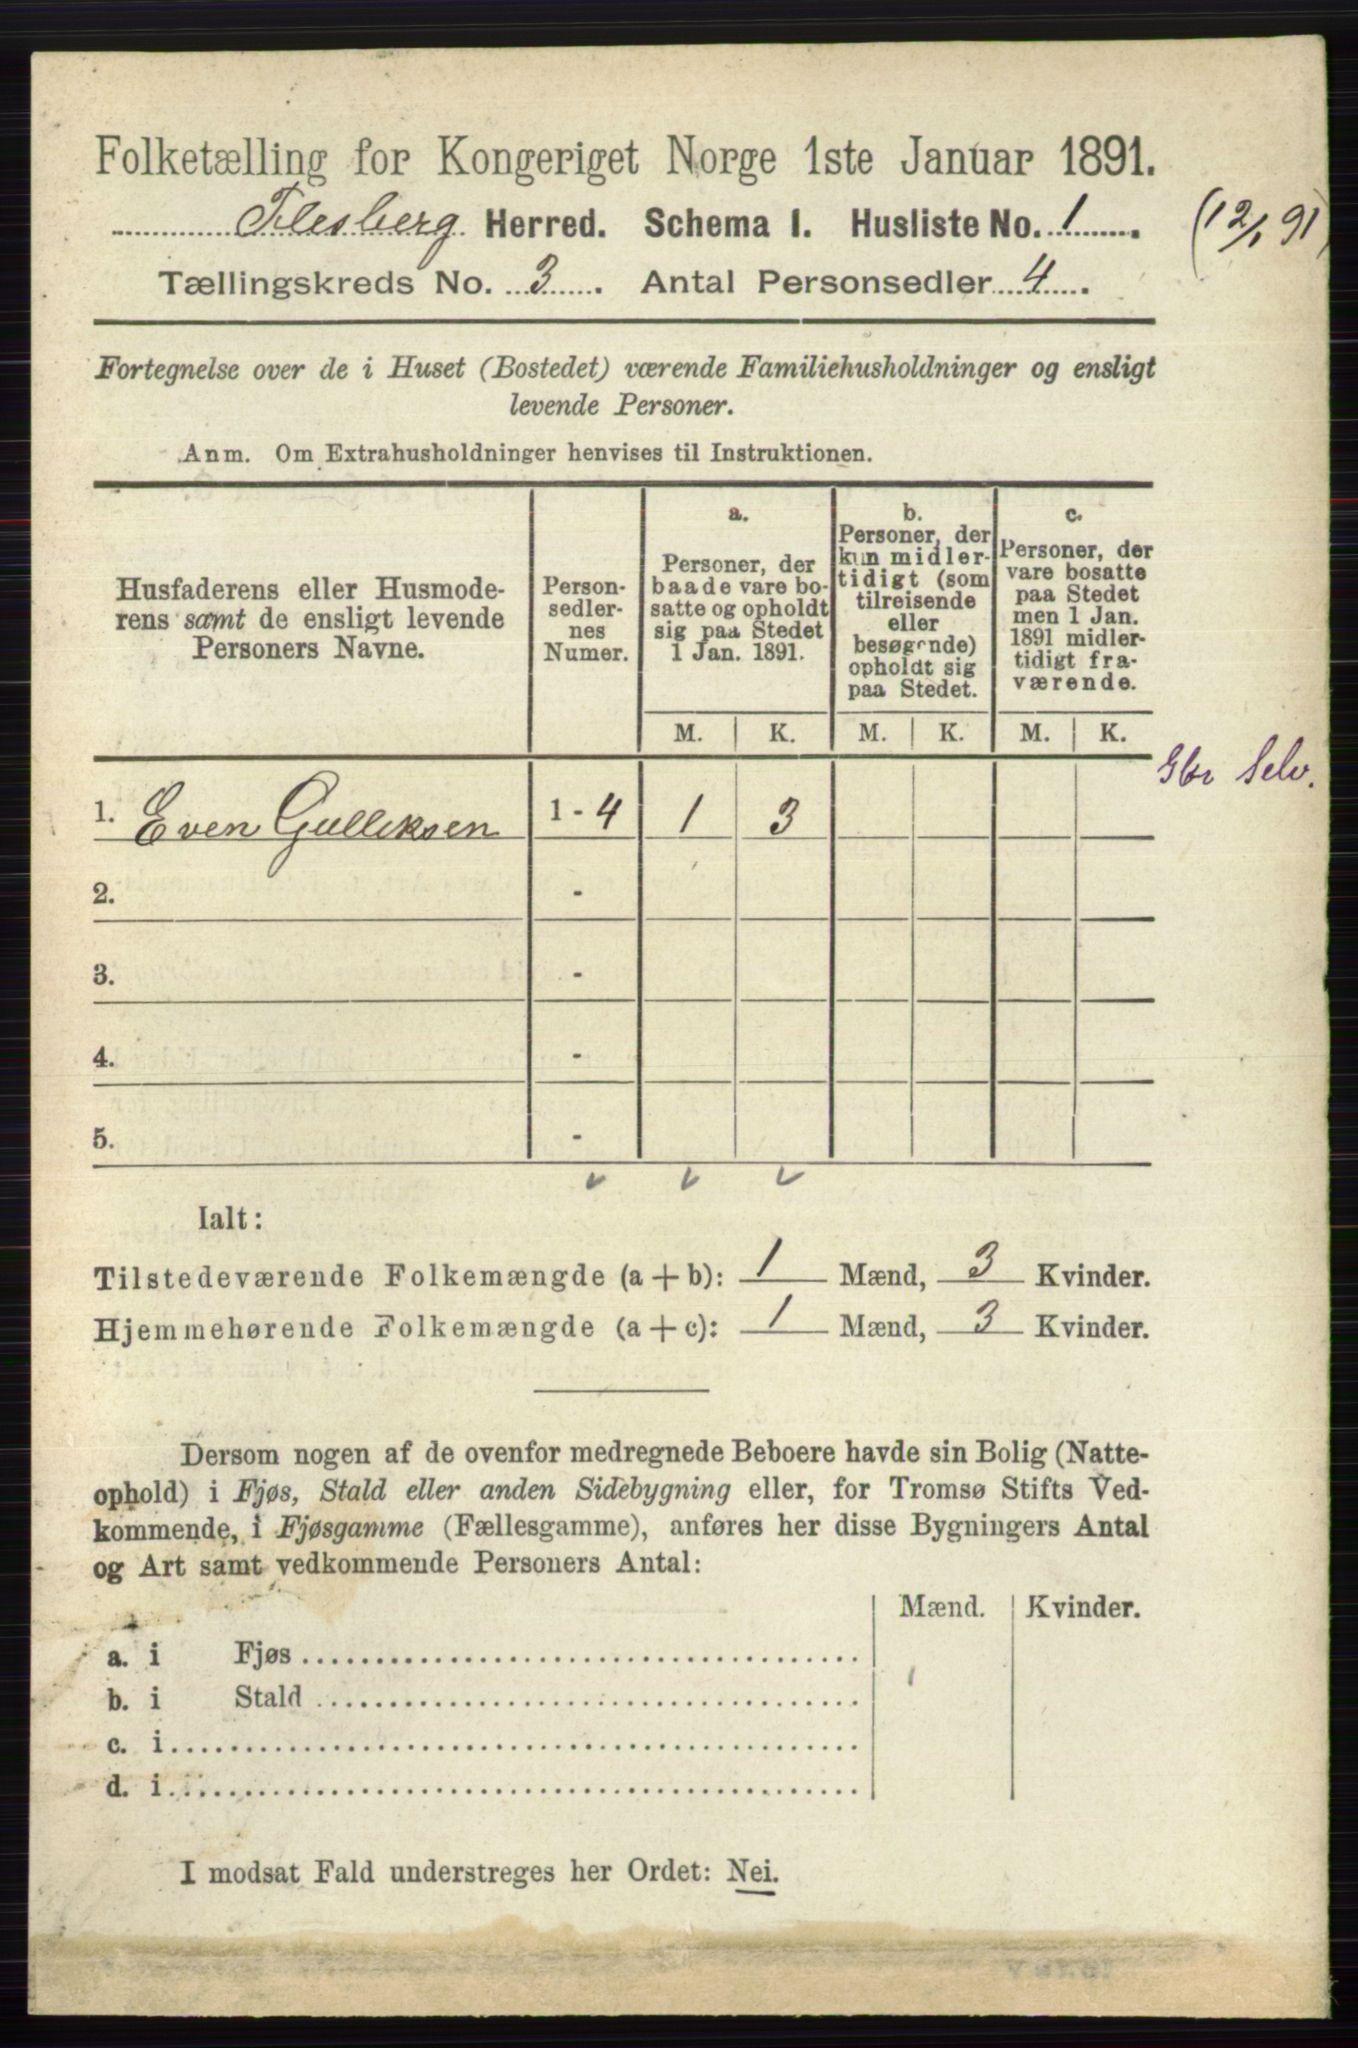 Folketælling for Kongeriget Norge 1ste Januar 1891.
Flesberg Herred. Schema I. Husliste No. 1.
(12/1 91)
Tællingskreds No. 3. Antal Personsedler 4.
Fortegnelse over de i Huset (Bostedet) værende Familiehusholdninger og ensligt
levende Personer.
Anm. Om Extrahusholdninger henvises til Instruktionen.
Husfaderens eller Husmode-
rens samt de ensligt levende
Personers Navne.
Person-
sedler-
nes
Numer.
a.
Personer, der
baade vare bo-
satte og opholdt
sig paa Stedet
1 Jan. 1891.
b.
Personer, der
kun midler-
tidigt (som
tilreisende
eller
besøgende)
opholdt sig
paa Stedet.
c.
Personer, der
vare bosatte
paa Stedet
men 1 Jan.
1891 midler-
tidigt fra-
værende.
M. K. M. K. M. K.
Selv.
1. Even Gulliksen 1 - 4 1 3
2. -
3. -
4. -
5. -
Ialt:
Tilstedeværende Folkemængde (a + b): 1 Mænd, 3 Kvinder.
Hjemmehørende Folkemængde (a + c): 1 Mænd, 3 Kvinder.
Dersom nogen af de ovenfor medregnede Beboere havde sin Bolig (Natte-
ophold) i Fjøs, Stald eller anden Sidebygning eller, for Tromsø Stifts Ved-
kommende, i Fjøsgamme (Fællesgamme), anføres her disse Bygningers Antal
og Art samt vedkommende Personers Antal:
Mænd. Kvinder.
a. i Fjøs
b. i Stald
c. i
d. i
I modsat Fald understreges her Ordet: Nei.